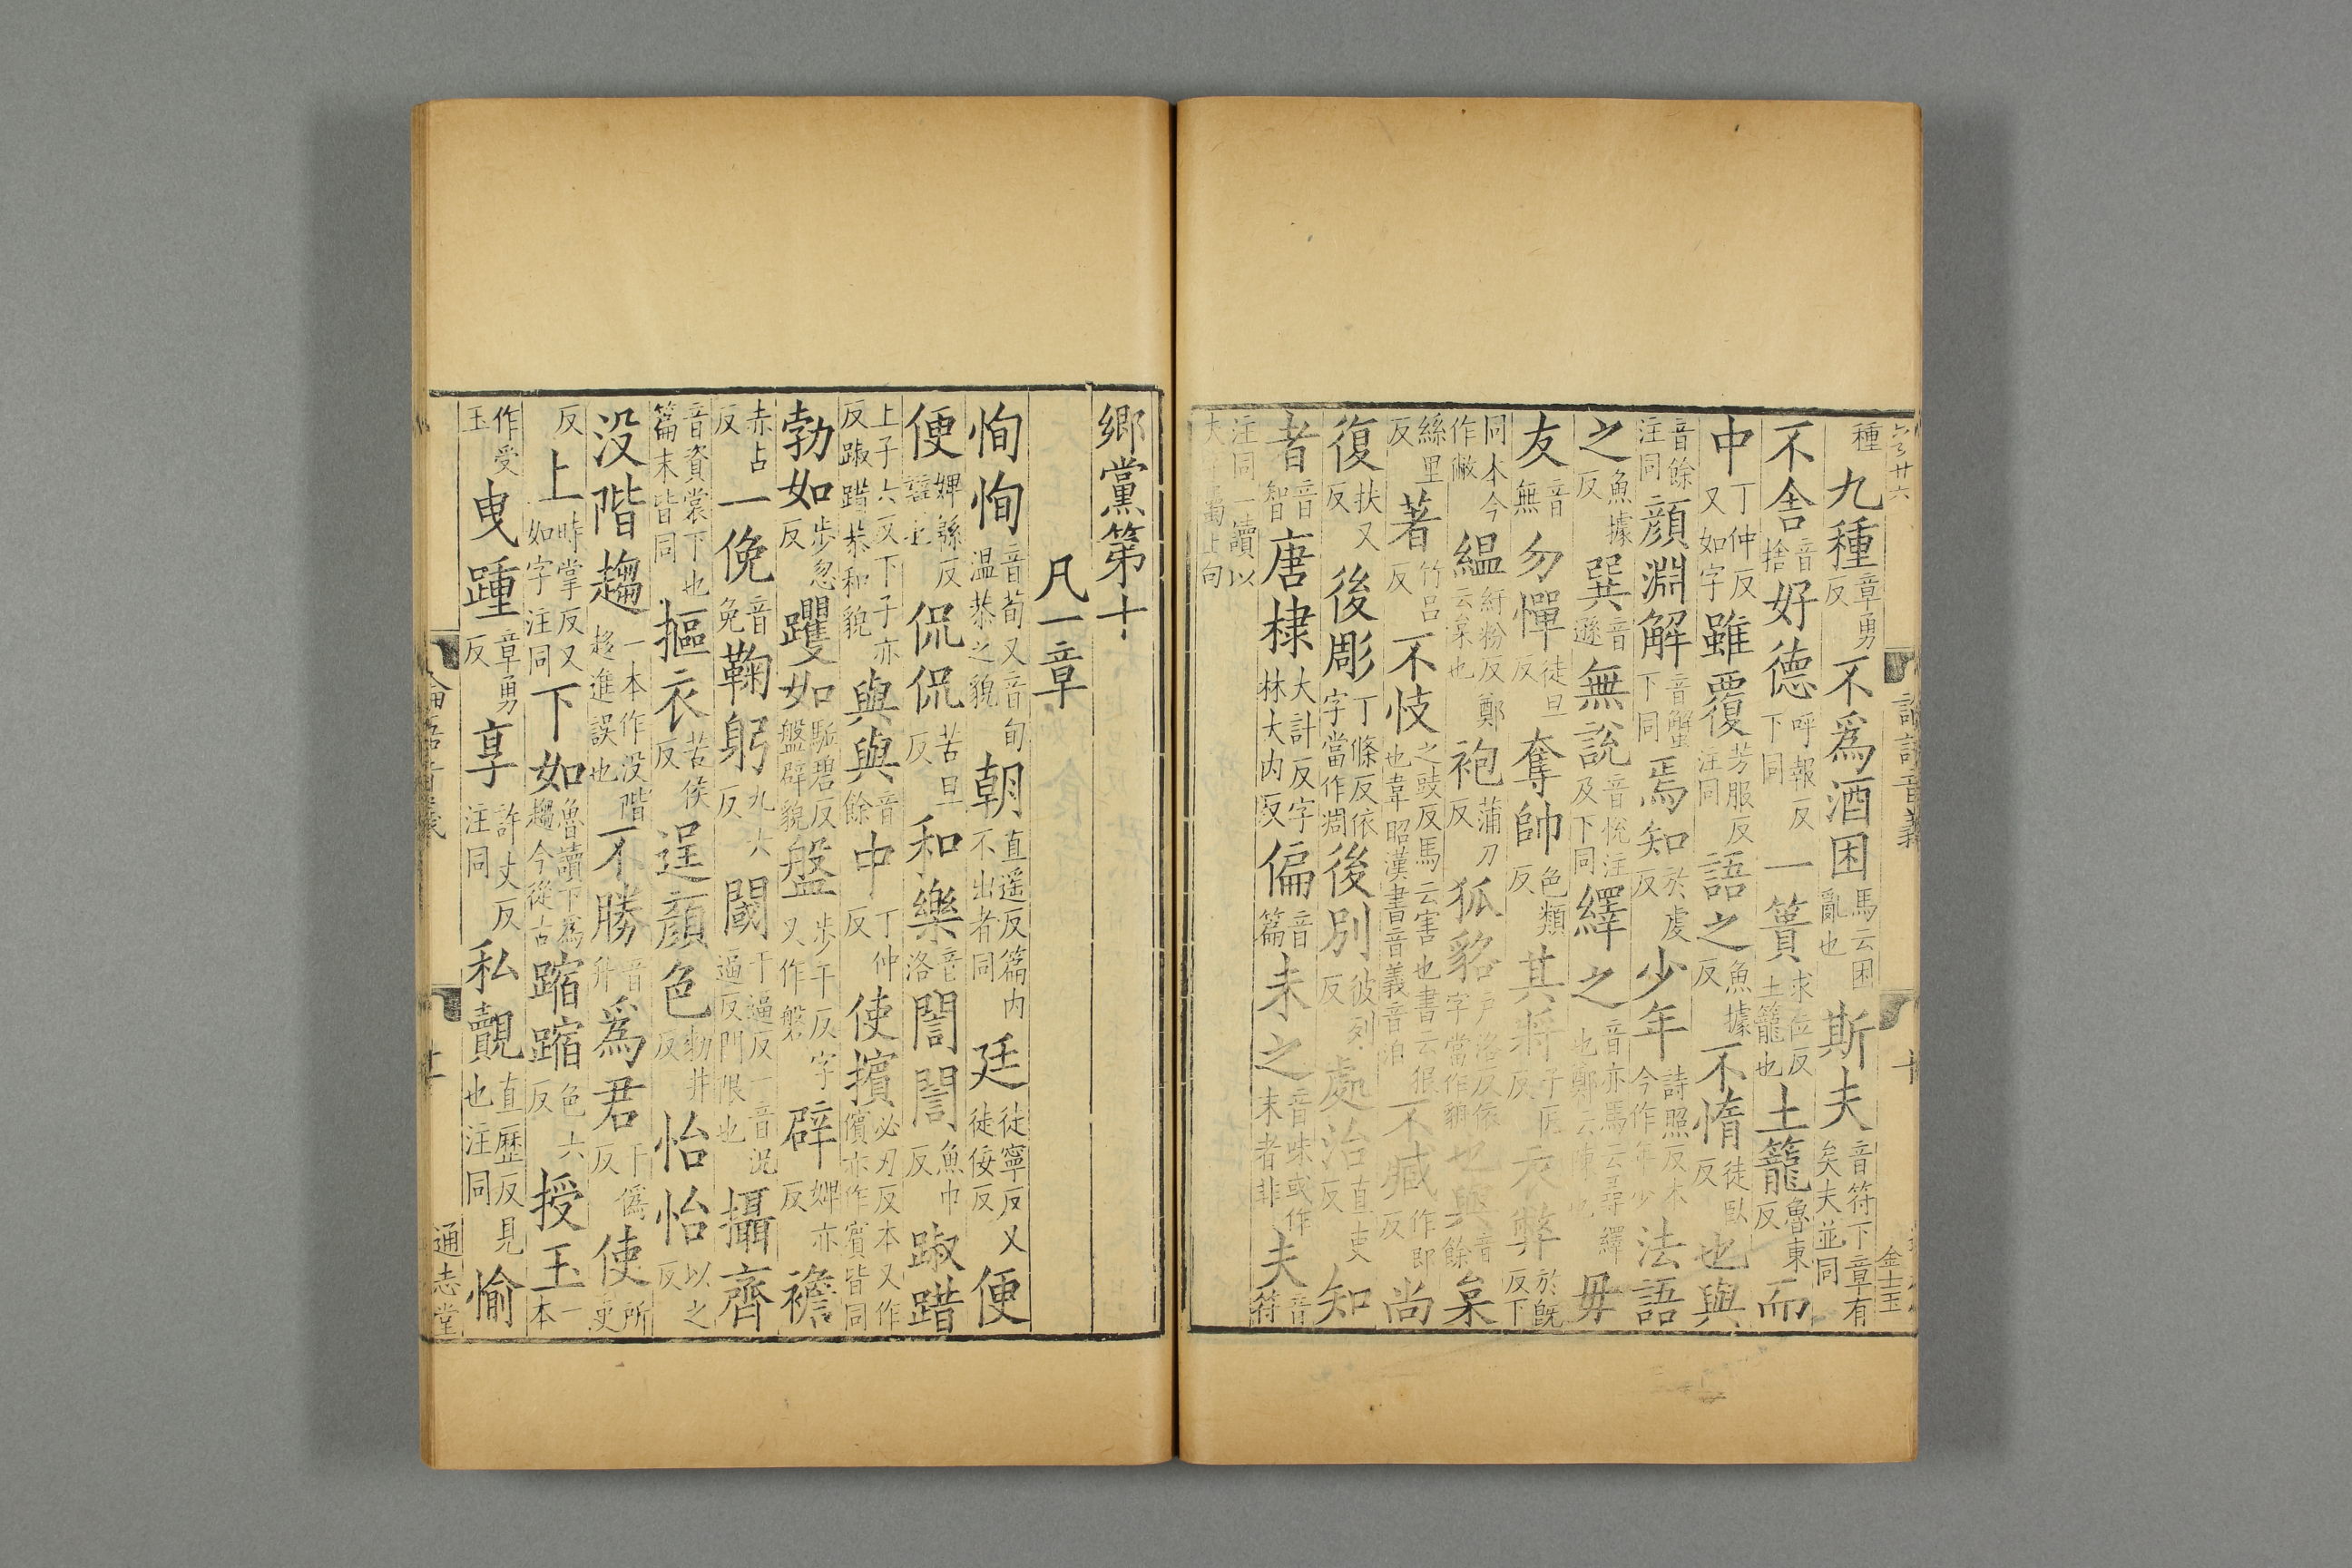 種九種章勇反不爲酒困馬云困亂也斯夫音符下章有矣夫並同
不舍音捨好德呼報反下同一簣求位反土籠也土籠魯東反而
中丁仲反又如字雖覆芳服反注同語之魚據反不惰徒臥反也與
音餘注同顔淵解音蟹下同焉知於虔反少年詩照反本今作年少法語
之魚據反巽音遜無說音悅注及下同繹之音亦馬云尋繹也鄭云陳也毋
友音無勿憚徒旦反奪帥色類反其將子匠反衣弊於旣反下
同本今作敝緼紆粉反鄭云枲也袍蒲刀反狐貉戶洛反依字當作貈也與音餘枲
絲里反著竹呂反不忮之豉反馬云害也書云狠也韋昭漢書音義音洎不臧作郎反尚
復扶又反後彫丁條反依字當作凋後別彼列反處治直吏反知
者音智唐棣大計反字林大内反偏音篇未之音味或作末者非夫音符
注同一讀以夫爲上句
鄉黨第十
凡一章
恂恂音荀又音旬温恭之貌朝直遥反篇内不出者同廷徒寧反又徒佞反便
便婢緜反辯也侃侃苦旦反和樂音洛誾誾魚巾反踧踖
上子六反下子亦反踧踖恭和貌與與音餘中丁仲反使擯必刃反本又作儐亦作賓皆同
勃如步忽反躩如駈碧反盤辟貌盤步干反字又作磐辟婢亦反襜
赤占反一俛音免鞠躬九六反閾于逼反一音況逼反門限也攝齊
音資裳下也篇末皆同摳衣苦侯反逞顔色勑井反怡怡以之反
没階趨一本作没階趨進誤也不勝音升爲君于僞反使所吏
反上時掌反又如字注同下如魯讀下爲趨今從古蹜蹜色六反授玉一本
作受玉曳踵章勇反享許丈反注同私覿直歷反見也注同愉
通志堂